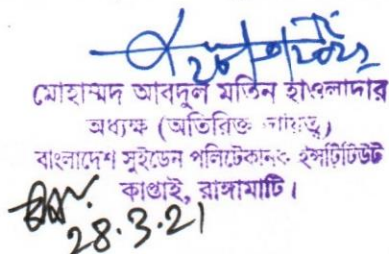 মোহাম্মদ আবদুল মতিন হাওলাদার
অধ্যক্ষ (অতিরিক্ত দায়িত্ব)
বাংলাদেশ সুইডেন পলিটেকনিক ইন্সটিটিউট
কাপ্তাই, রাঙ্গামাটি।
28.3.21